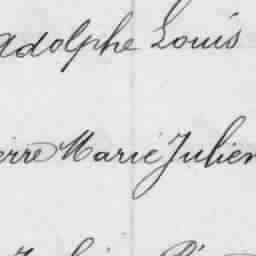 Adolphe Louis
erre Marie Julien